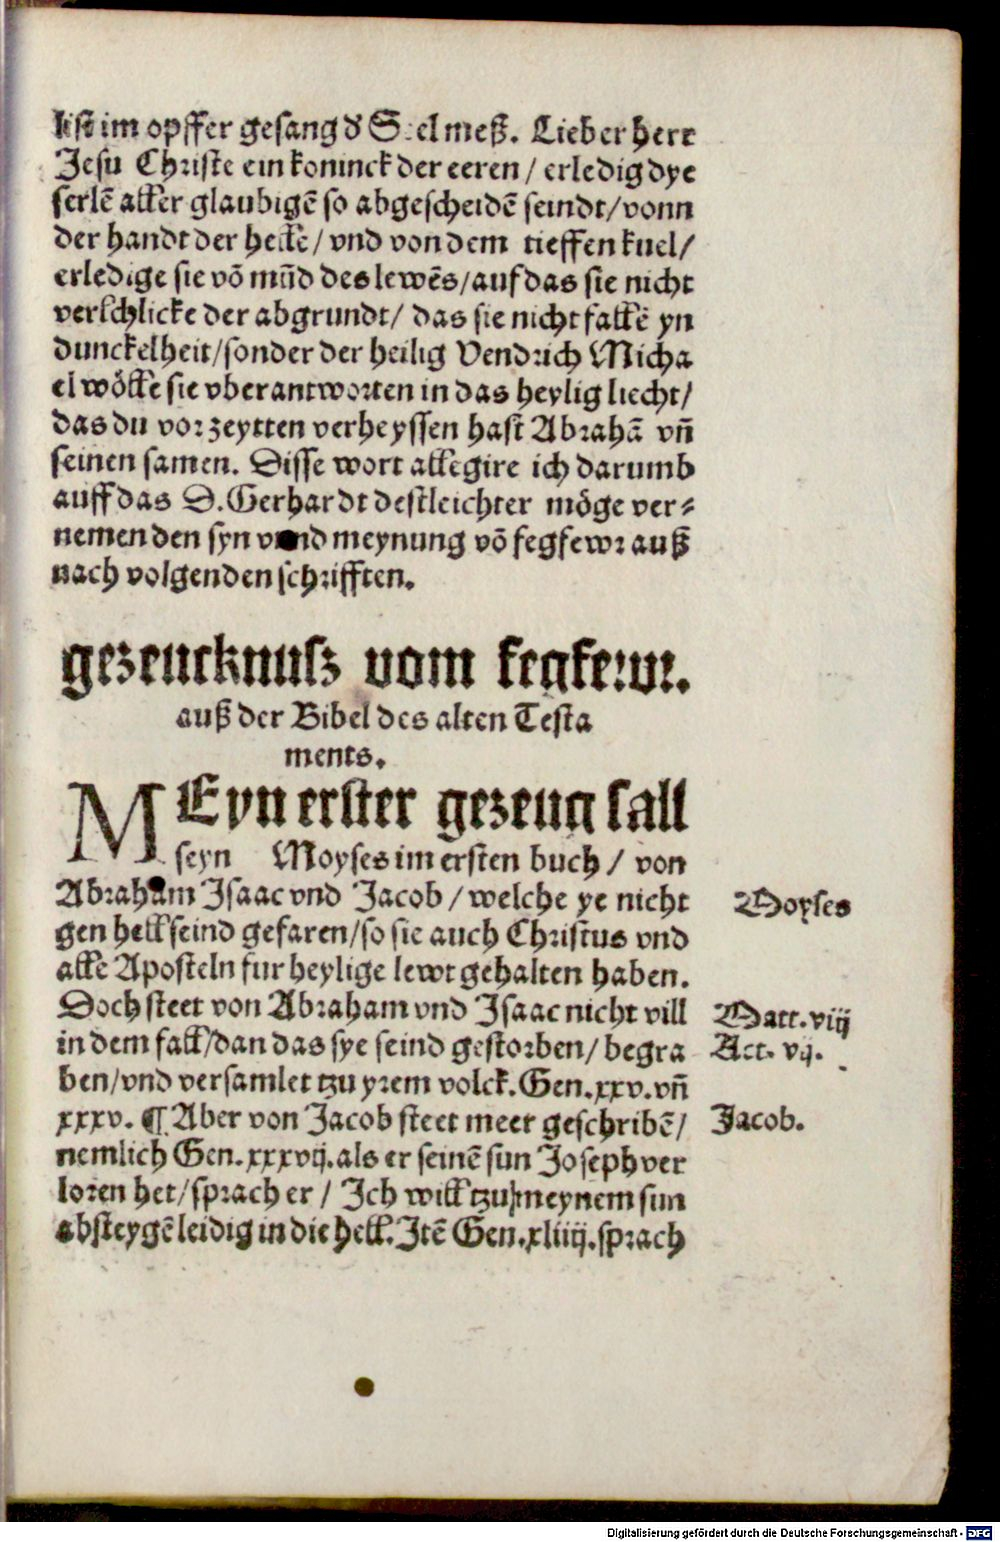 list im opffer gesang d' Seelmeß. Lieber herr
Jesu Christe ein koninck der eeren / erledig dye
serlē aller glaubigē so abgescheidē seindt/vonn
der handt der hellē/ vnd von dem tieffen kuel/
erledige sie vō mūd des lewēs/auf das sie nicht
verschlicke der abgrundt/ das sie nicht fallē yn
dunckelheit/sonder der heilig Vendrich Micha
el wölle sie vberantworten in das heylig liecht/
das du vor zeytten verheyssen hast Abrahā vn̄
seinen samen. Disse wort allegire ich darumb
auff das D. Gerhardt destleichter möge ver⸗
nemen den syn vnnd meynung vō fegfewr auß
nach volgenden schrifften.
gezeucknusz vom fegfewr.
auß der Bibel des alten Testa
ments.
MEyn erster gezeug sall
seyn Moyses im ersten buch / von
Abraham Isaac vnd Jacob / welche ye nicht
gen hell seind gefaren/so sie auch Christus vnd
alle Aposteln fur heylige lewt gehalten haben.
Doch steet von Abraham vnd Isaac nicht vill
in dem fall/dan das sye seind gestorben/ begra
ben/vnd versamlet tzu yrem volck. Gen. xxv. vn̄
xxxv. ¶ Aber von Jacob steet meer geschribē/
nemlich Gen. xxxvij. als er seinē sun Joseph ver
loren het/sprach er / Ich will tzu meynem sun
absteygē leidig in die hell. Itē Gen. xliiij. sprach
Moyses
Matt. viij
Act. vij.
Jacob.
Digitalisierung gefördert durch die Deutsche Forschungsgemeinschaft - DFG